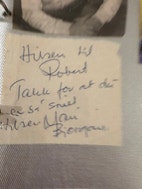 Hilsen til
Robert
Takk for at du
er så snill
Hilsen Mari